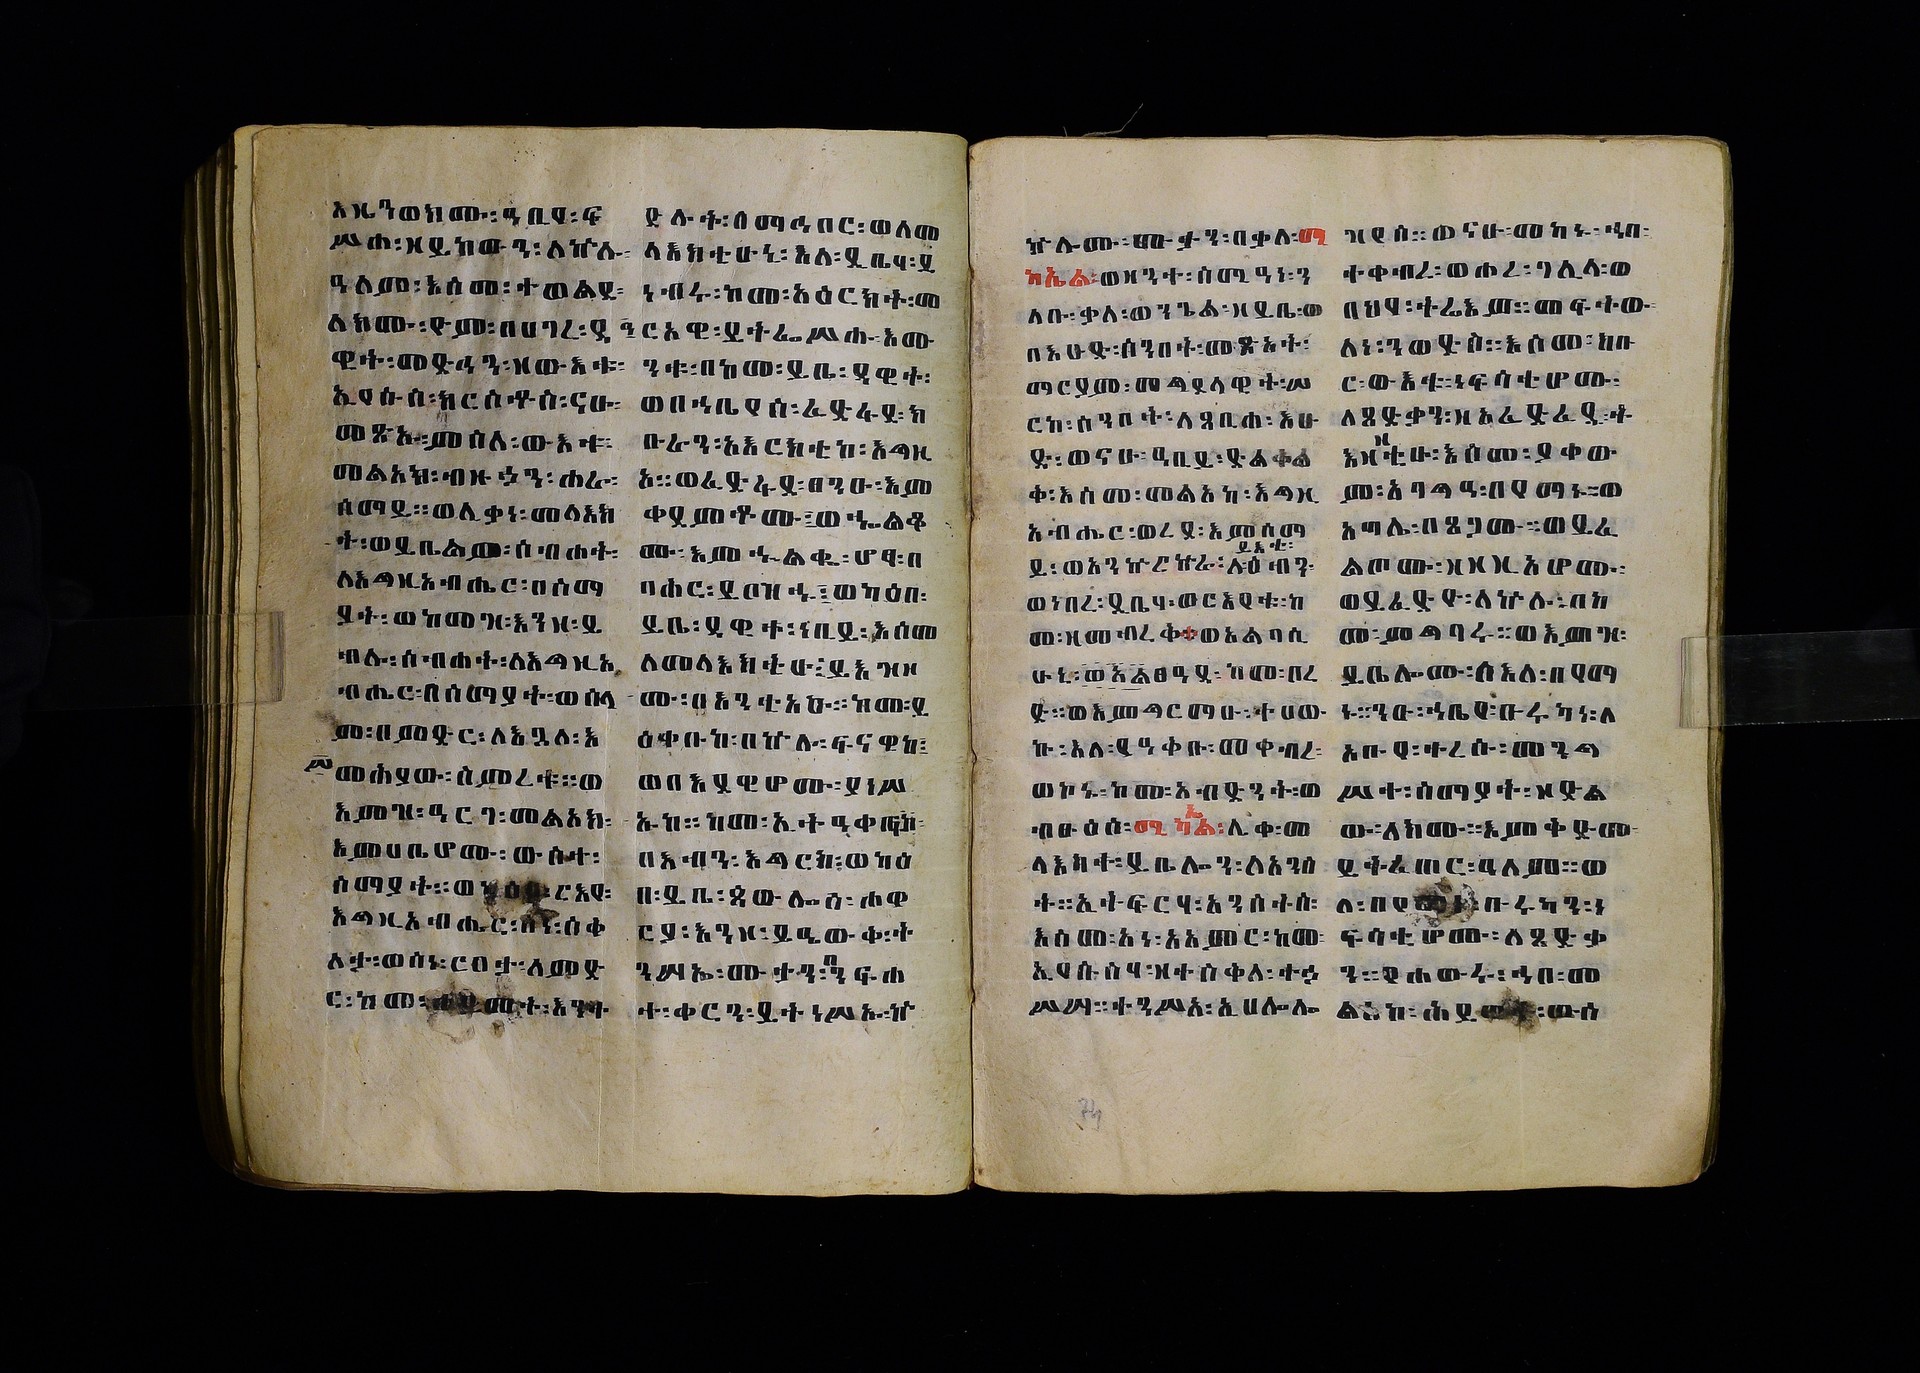 እዜንወክሙ፡ ዓቢየ፡ ፍ
ሥሐ፡ ዘይከውን፡ ለኵሉ፡
ዓለም፡ እስመ፡ ተወልደ፡
ለክሙ፡ ዮም፡ በሀገረ፡ ዳ
ዊት፡ መድኃን፡ ዘውእቱ፡
ኢየሱስ፡ ክርስቶስ፡ ናሁ፡
መጽኡ፡ ምስለ፡ ውእቱ፡
መልአክ፡ ብዙኃን፡ ሐራ፡
ሰማይ። ወሊቃነ፡ መላእክ
ት፡ ወይቤልም፡ ስብሐት፡
ለእግዚአብሔር፡ በሰማ
ያት፡ ወከመዝ፡ እንዘ፡ ይ
ብሉ፡ ስብሐት፡ ለእግዚአ
ብሔር፡ በሰማያት፡ ወሰላ
ም፡ በምድር፡ ለእጓለ፡ እ
መሕያው፡ ሥምረቱ። ወ
እምዝ፡ ዓርገ፡ መልአክ፡
እምሀቤሆሙ፡ ውስተ፡
ሰማያት። ወ ርእየ፡
እግዚአብሔር፡ ስቀ
ለታ፡ ወሰኑ፡ ርበታ፡ ለምድ
ር፡ ከመ፡ እንተ
ድሉት፡ ሰማኅበር፡ ወለመ
ላእክቲሁኒ፡ እለ፡ ይቤሄ፡ ይ
ነብሩ፡ ከመ፡ አዕርክት፡ መ
ዓርአዊ፡ ይትፌሥሐ፡ እሙ
ንቱ፡ በከመ፡ ይቤ፡ ዳዊት፡
ወበኀቤየሰ፡ ፈድፋደ፡ ክ
ቡራን፡ አእርክቲከ፡ እግዚ
አ። ወፈድፋደ፡ በንሁ፡ እም
ቀደምቶሙ፡ ወኁልቆ
ሙ፡ እምኁልቁ፡ ሆፃ፡ በ
ባሕር፡ ይበዝኁ፡ ወካዕበ፡
ይቤ፡ ዳዊት፡ ነቢይ፡ እስመ
ለመላእክቲሁ፡ ይእዝዞ
ሙ፡ በእንቲአከ። ከሙ፡ ይ
ዕቀቡከ፡ በኵሉ፡ ፍናዊከ፡
ወበእደዊሆሙ፡ ያነሥ
ኡከ። ከመ፡ ኢትዓቀፍ፡
በእብን፡ እግርከ፡ ወካዕ
በ፡ ይቤ፡ ጳውሎስ፡ ሐዋ
ርያ፡ እንዘ፡ ይዜውቀ፡ ት
ንሣኤ፡ ሙታን፡ ንፍሐ
ተ፡ ቀርን፡ ይትነሥኡ፡ ኵ
ኵሉሙ፡ ሙታን፡ በቃለ፡ ሚ
ካኤል፡ ወዘንተ፡ ሰሚዓነ፡ ን
ለቡ፡ ቃለ፡ ወንጌል፡ ዘይቤ፡ ወ
በአሁድ፡ ሰንበት፡ መጽአት፡
ማርያም፡ መግደላዊት፡ ሥ
ርከ፡ ሰንበት፡ ለጸቢሐ፡ እሁ
ድ፡ ወናሁ፡ ዓቢይ፡ ድልቅል
ቅ፡ እስመ፡ መልአከ፡ እግዚ
አብሔር፡ ወረደ፡ እምሰማ
ይ፡ ወአንኰርኰራ፡ ለዕብን፡
ይእቲ፡
ወነበረ፡ ዲቤሃ፡ ወርእየቱ፡ ከ
መ፡ ዘመብረቅ፡ ወአልባሲ
ሁኒ፡ ወእልፀዓደ፡ ከመ፡ በረ
ድ። ወእምግርማሁ፡ ተሀው
ኩ፡ እለ፡ የዓቅቡ፡ መቀብረ፡
ወኮኑ፡ ከሙ፡ አብድንት፡ ወ
ብፁዕሰ፡ ሚካኤል፡ ሊቀ፡ መ
ላእክት፡ ይቤሎን፡ ለአንስ
ት። ኢትፍርሃ፡ አንስትሰ፡
እስመ፡ አነ፡ አአምር፡ ከመ፡
ኢየሱስሃ፡ ዘተሰቅለ፡ ተኃ
ሥሣ። ተንሥአ፡ ኢሀሎሎ
ዝየሰ። ወናሁ፡ መካኑ፡ ኀበ፡
ተቀብረ፡ ወሐረ፡ ገሊላ፡ ወ
በህየ፡ ትሬእዎ። መፍተው፡
ለነ፡ ንወድስ። እስመ፡ ክቡ
ር፡ ውእቱ፡ ነፍሳቲሆሙ፡
ለጻድቃን፡ ዘአፈድፈደ፡ ት
እዛቲሁ፡ እስመ፡ ያቀው
ሞ፡ አባግዓ፡ በየማኑ። ወ
አጣሌ፡ በጸጋሙ። ወይፈ
ልጦሙ፡ ዘዘዚአሆሙ፡
ወይፈድዮ፡ ለኵሉ፡ በከ
መ፡ ምግባሩ። ወእምዝ፡
ይቤሎሙ፡ ለእለ፡ በየማ
ኑ። ንዑ፡ ኀቤየ፡ ቡሩካኑ፡ ለ
አቡየ፡ ተረሱ፡ መንግ
ሥተ፡ ሰማያት፡ ዘድል
ው፡ ለክሙ። እምቅድመ፡
ይትፈጠር፡ ዓለም። ወ
ለ፡ በየ ቡሩካን፡ ነ
ፍሳቲሆሙ፡ ለጻድቃ
ን። የሐውሩ፡ ኀበ፡ መ
ልዕከ፡ ሕይወት፡ ውስ
74